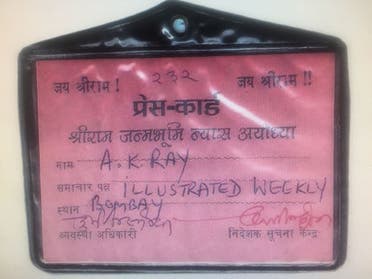 जय श्रीराम ! 232 जय श्रीराम !!
प्रेस-कार्ड
श्रीराम जन्मभूमि न्यास अयोध्या
नाम A.K.RAY
समाचार पत्र ILLUSTRATED WEEKLY
स्थान BOMBAY
व्यवस्था अधिकारी निदेशक सूचना केन्द्र